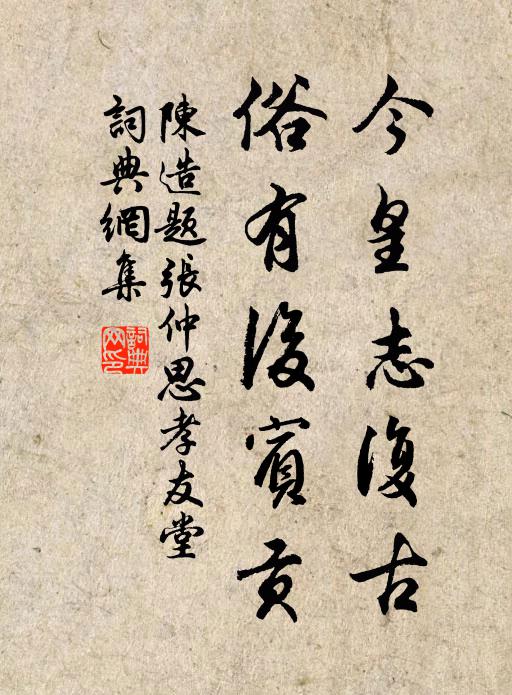 今皇志復古
俗有後賓貢
陳造題張仲思孝友堂
詞典網集
詞典网印